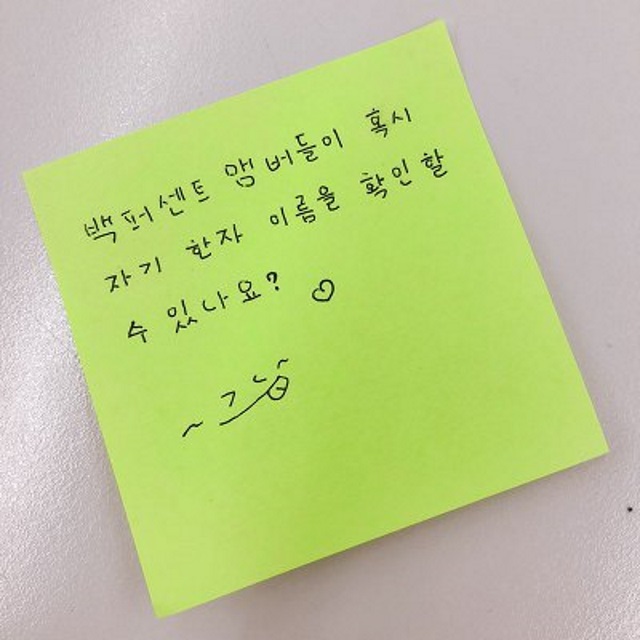 백퍼센트 맴버들이 혹시
자기 한자 이름을 확인할
수 있나요? ♡